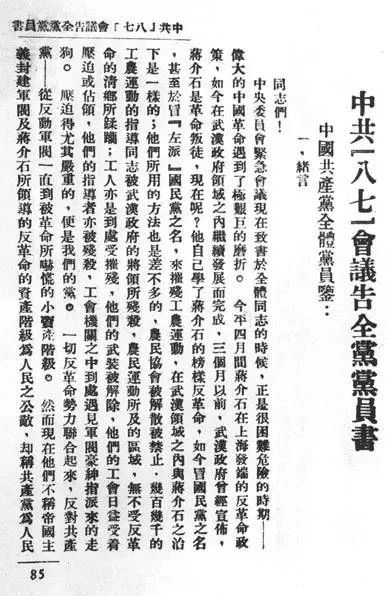 中共「八七」會議告全黨黨員書
中共「八七」會議告全黨黨員書
中國共產黨全體黨員鑒：
一、緒言
同志們！
中央委員會緊急會議現在致書於全體同志的時候，正是很困難危險的時期——
偉大的中國革命遇到了極艱巨的磨折。　今年四月間蔣介石在上海發端的反革命政
策，如今在武漢政府領域之內繼續發展而完成，三個月以前，武漢政府曾經宣佈，
蔣介石是革命叛徒，現在呢？他自己學了蔣介石的榜樣反革命，如今冒國民黨之名
，甚至於冒『左派』國民黨之名，來摧殘工農運動，在武漢領域之內與蔣介石之治
下是一樣的；他們所用的方法也是差不多的，農民協會被解散被禁止．幾百幾千的
工農運動的指導同志被武漢政府的將領所殘殺，農民運動所及的區域，無不受反革
命的清鄉所蹂躪；工人亦是到處受摧殘，他們的武裝被解除，他們的工會日益受着
壓迫或佔領，他們的指導者亦被殘殺，工會機關之中到處遇見軍閥豪紳指派來的走
狗。　壓迫得尤其嚴重的，便是我們的黨。　一切反革命勢力聯合起來，反對共產
黨——從反動軍閥一直到被革命所嚇慌的小資產階級。　然而現在他們不稱帝國主
義封建軍閥及蔣介石所領導的反革命的資產階級爲人民之公敵，却稱共產黨爲人民
85